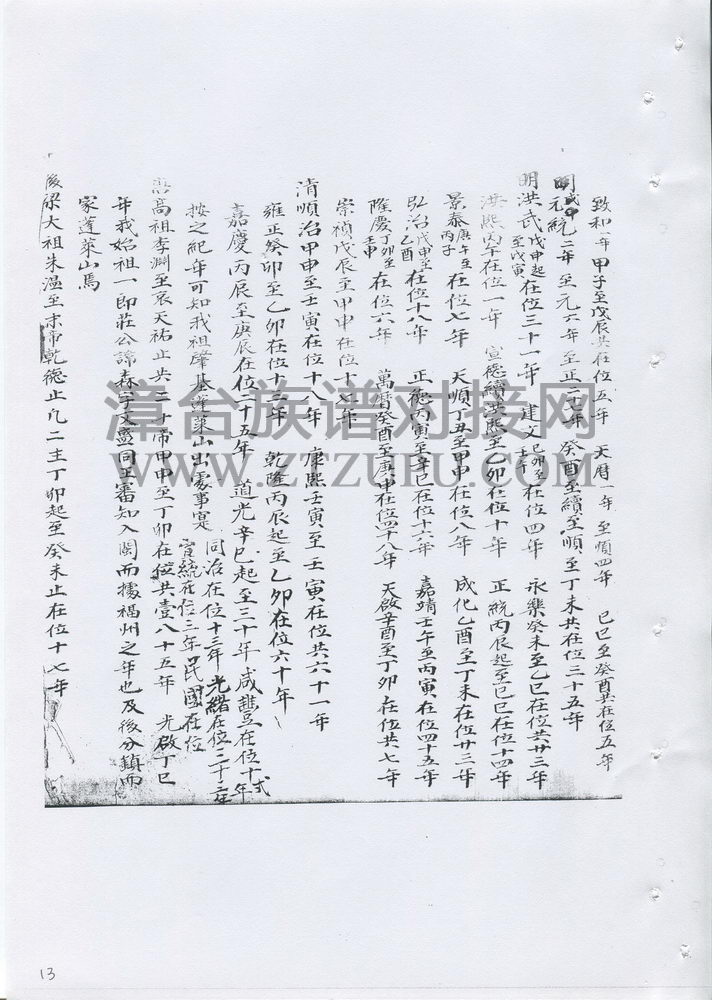 致和一年 甲子至戊辰共在位五年 天曆一年 至順四年 己巳至癸酉共在位五年
元統二年 至元六年 至正二十年 癸酉至續至順至丁未共在位三十五年
明洪武戊申起至戊寅在位三十一年 建文己卯至壬午在位四年 永樂癸未至乙巳在位共廿三年
洪熙丙午在位一年 宣德續洪熙至乙卯在位十年 正統丙辰起至己巳在位十四年
景泰庚午至丙子在位七年 天順丁丑至甲申在位八年 成化乙酉至丁未在位廿三年
弘治戊申至乙酉在位十八年 正德丙寅至辛巳在位十六年 嘉靖壬午至丙寅在位四十五年
隆慶丁卯至壬申在位六年 萬曆癸酉至庚申在位四十八年 天啟辛酉至丁卯在位共七年
崇禎戊辰至甲申在位十七年
清順治甲申至壬寅在位十八年 康熙壬寅至壬寅在位共六十一年
雍正癸卯至乙卯在位十三年 乾隆丙辰起至乙卯在位六十年
嘉慶丙辰至庚辰在位二十五年 道光辛巳起至三十年 咸豐在位十式年
同治在位十三年 光緒在位三十三年
宣統在位三年 民國在位
按之紀年可知我祖肇基蓬萊山出處事寔
高祖李淵至哀天祐止共二十帝甲申至丁卯在位共壹八十五年 光啟丁巳
年我始祖一郎莊公諱森字文盛同王審知入閩而據福州之年也及後分鎮而
家蓬萊山焉
後梁大祖朱溫至末帝乾德止凡二主丁卯起至癸未止在位十七年
漳台族谱对接网
WWW.ZTZUPU.COM
13